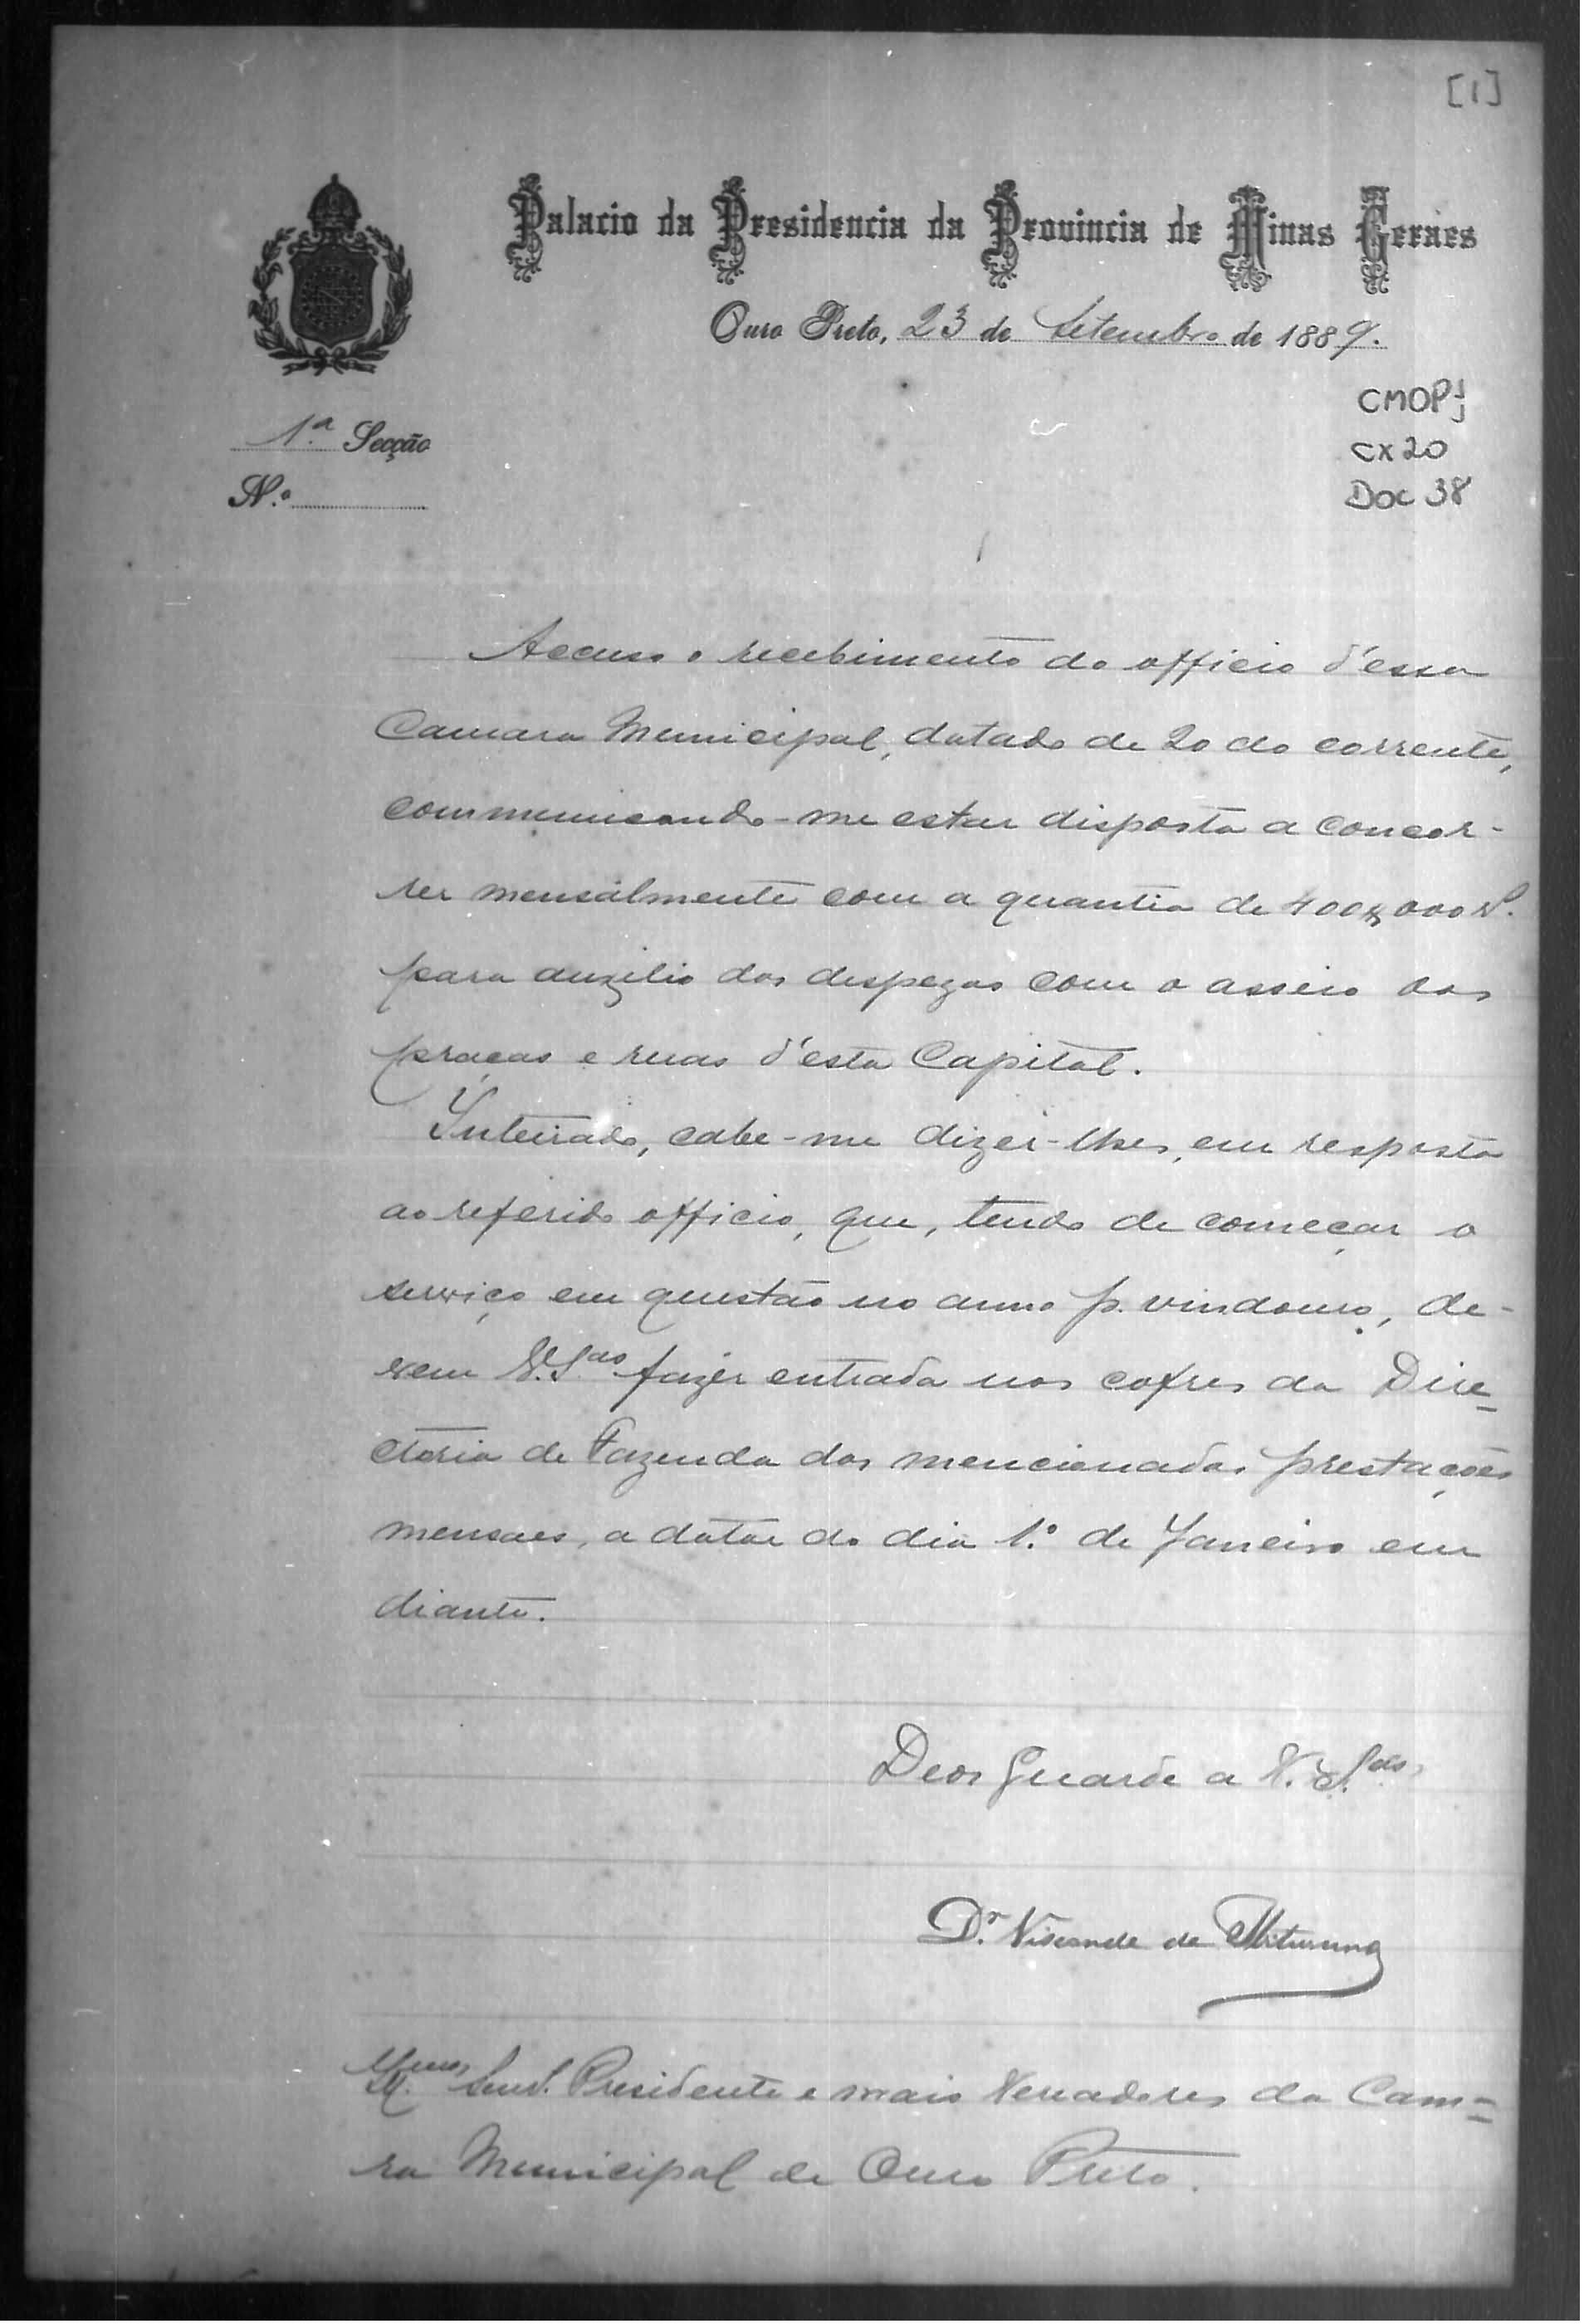 [1]
Palacio da Presidencia da Provincia de Minas Geraes
Ouro Preto, 23 de Setembro de 1889.
CMOP
1.ª Secção
CX 20
N.º
Doc 38
Accuso o recebimento do officio d'essa
Camara Municipal, datado de 20 do corrente,
communicando-me estar disposta a concor-
rer mensalmente com a quantia de 400$000 rs.
para auxilio das despezas com o asseio das
praças e ruas d'esta Capital.
Inteirado, cabe-me dizer-lhes, em resposta
ao referido officio, que, tendo de começar o
serviço em questão no anno p. vindouro, de-
vem V. S.as fazer entrada nos cofres da Dire-
ctoria de Fazenda das mencionadas prestações
mensaes, a datar do dia 1.º de Janeiro em
diante.
Deos Guarde a V. S.as
D.r Visconde de Ibituruna
Ill.mos Senr. Presidente e mais Vereadores da Cam=
ra Municipal de Ouro Preto.